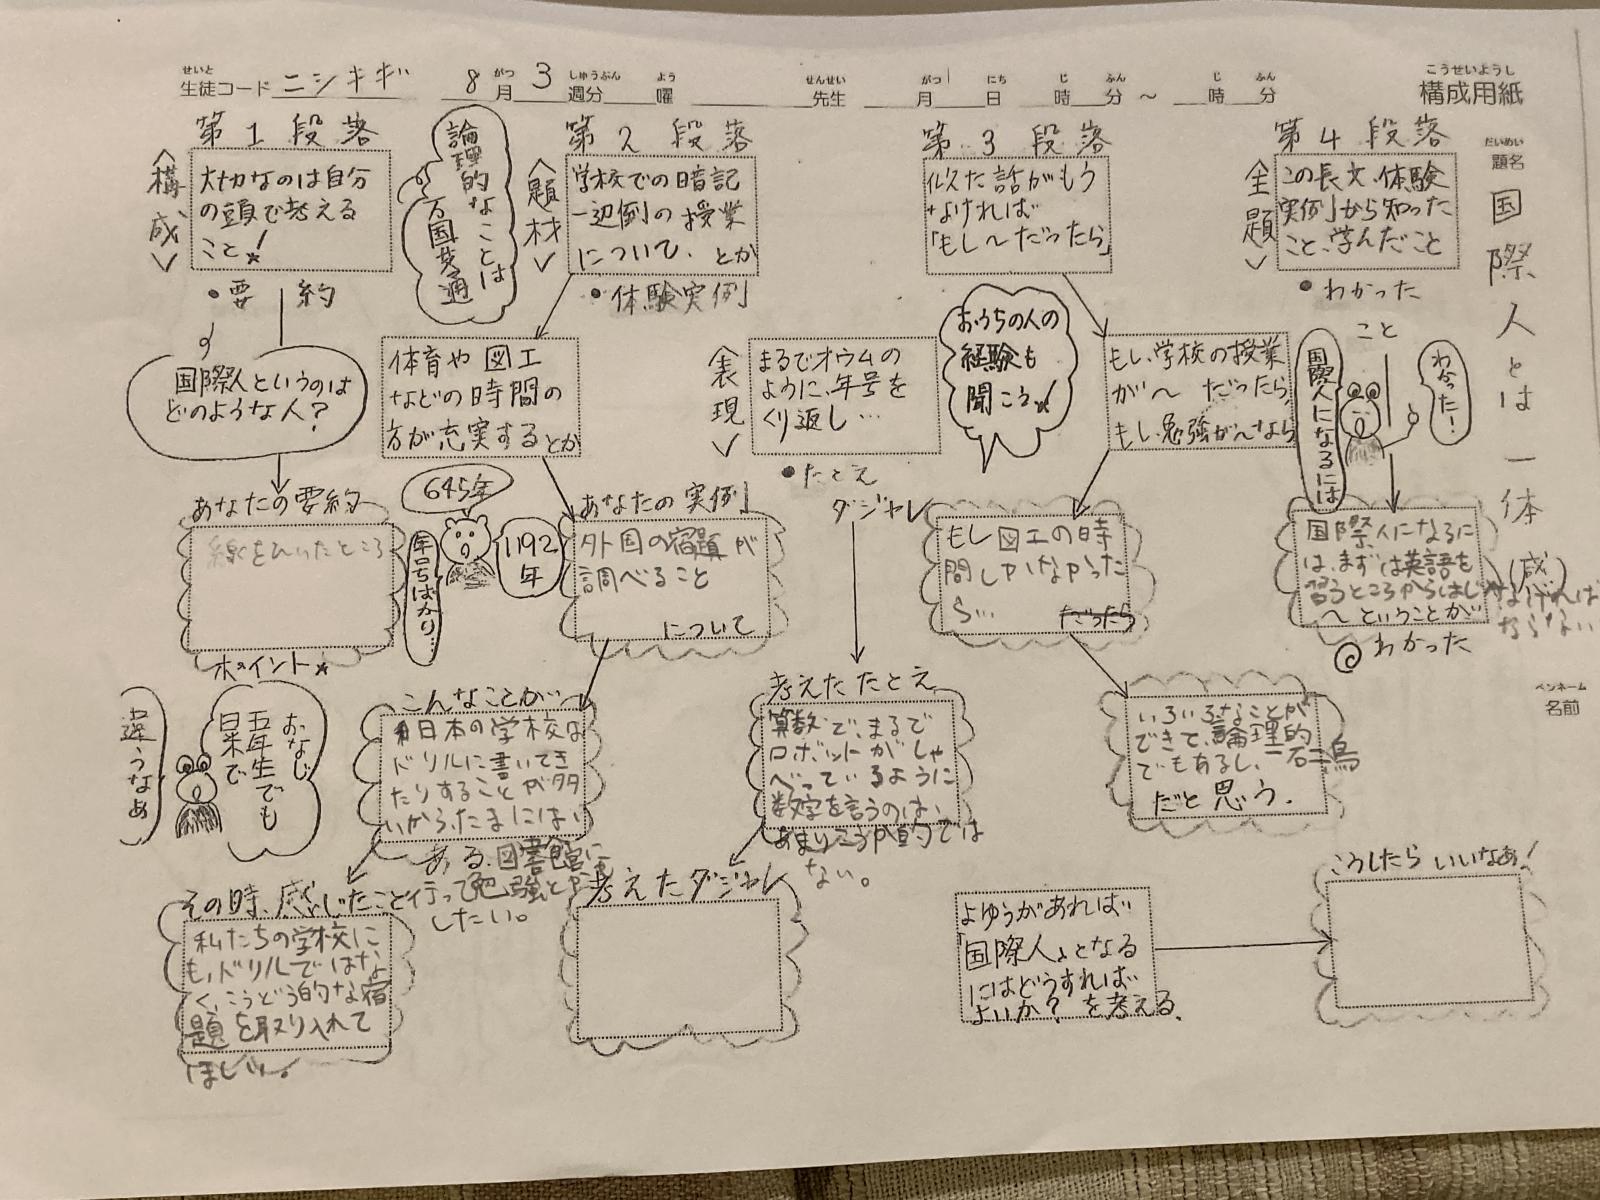 構成用紙
こうせいようし
生徒コード ニシキギ 8月3週分 曜 先生 月 日 時 分 ～ 時 分
せいと がつ しゅうぶん よう せんせい がつ にち じ ふん じ ふん
題名
だいめい
国際人とは一体(感)
ペンネーム
名前
第1段落
〈構成〉
大切なのは自分
の頭で考える
こと!
・要約
国際人というのは
どのような人?
あなたの要約
線をひいたところ
ポイント☆
論理的なことは
万国共通
第2段落
〈題材〉
学校での暗記
一辺倒の授業
について、とか
・体験実例
体育や図工
などの時間の
方が充実するとか
645年
1192年
年号ばかり…
あなたの実例
外国の宿題が
調べること
について
こんなことが
日本の学校は
ドリルに書いてき
たりすることが多
いから、たまには、
ある。図書館に
行って勉強とか
したい。
おなじ
五年生でも
日米で
違うなぁ
その時、感じたこと
私たちの学校に
も、ドリルではな
く、こうどう的な宿
題を取り入れて
ほしい。
〈表現〉
まるでオウムの
ように、年号を
くり返し…
・たとえ
ダジャレ
考えたたとえ
算数で、まるで
ロボットがしゃ
べっているように
数字を言うのは、
あまりこうか的では
ない。
考えたダジャレ
第3段落
似た話がもう
なければ
「もし～だったら」
おうちの人の
経験も
聞こう!
もし、学校の授業
が～だったら、
もし、勉強が～なら
もし図工の時
間しかなかった
ら…
だったら
いろいろなことが
できて、論理的
でもあるし、一石二鳥
だと思う。
第4段落
〈主題〉
この長文、体験
実例から知った
こと、学んだこと
・わかった
こと
国際人になるには
わ分った!
国際人になるに
は、まずは英語を
習うところからはじ
なければ
ならない
～ということが
わかった
よゆうがあれば
「国際人」となる
にはどうすれば
よいか?を考える。
こうしたらいいなあ!